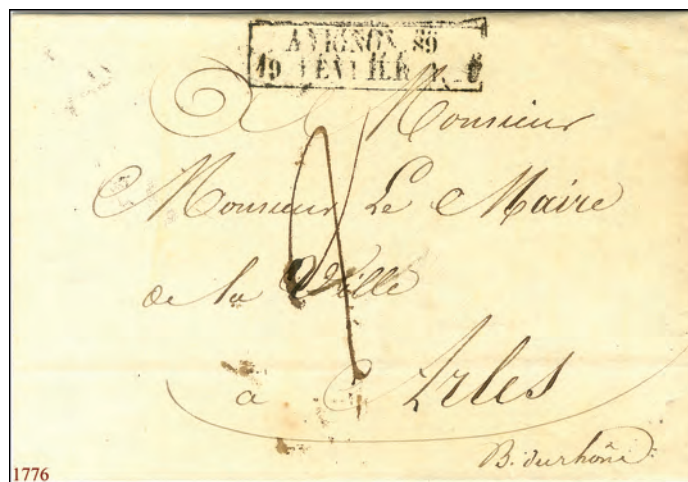 AVIGNON 89
19 FEVRIER
Monsieur
Monsieur Le Maire
de la Ville
à Arles
B. du rhône
1776